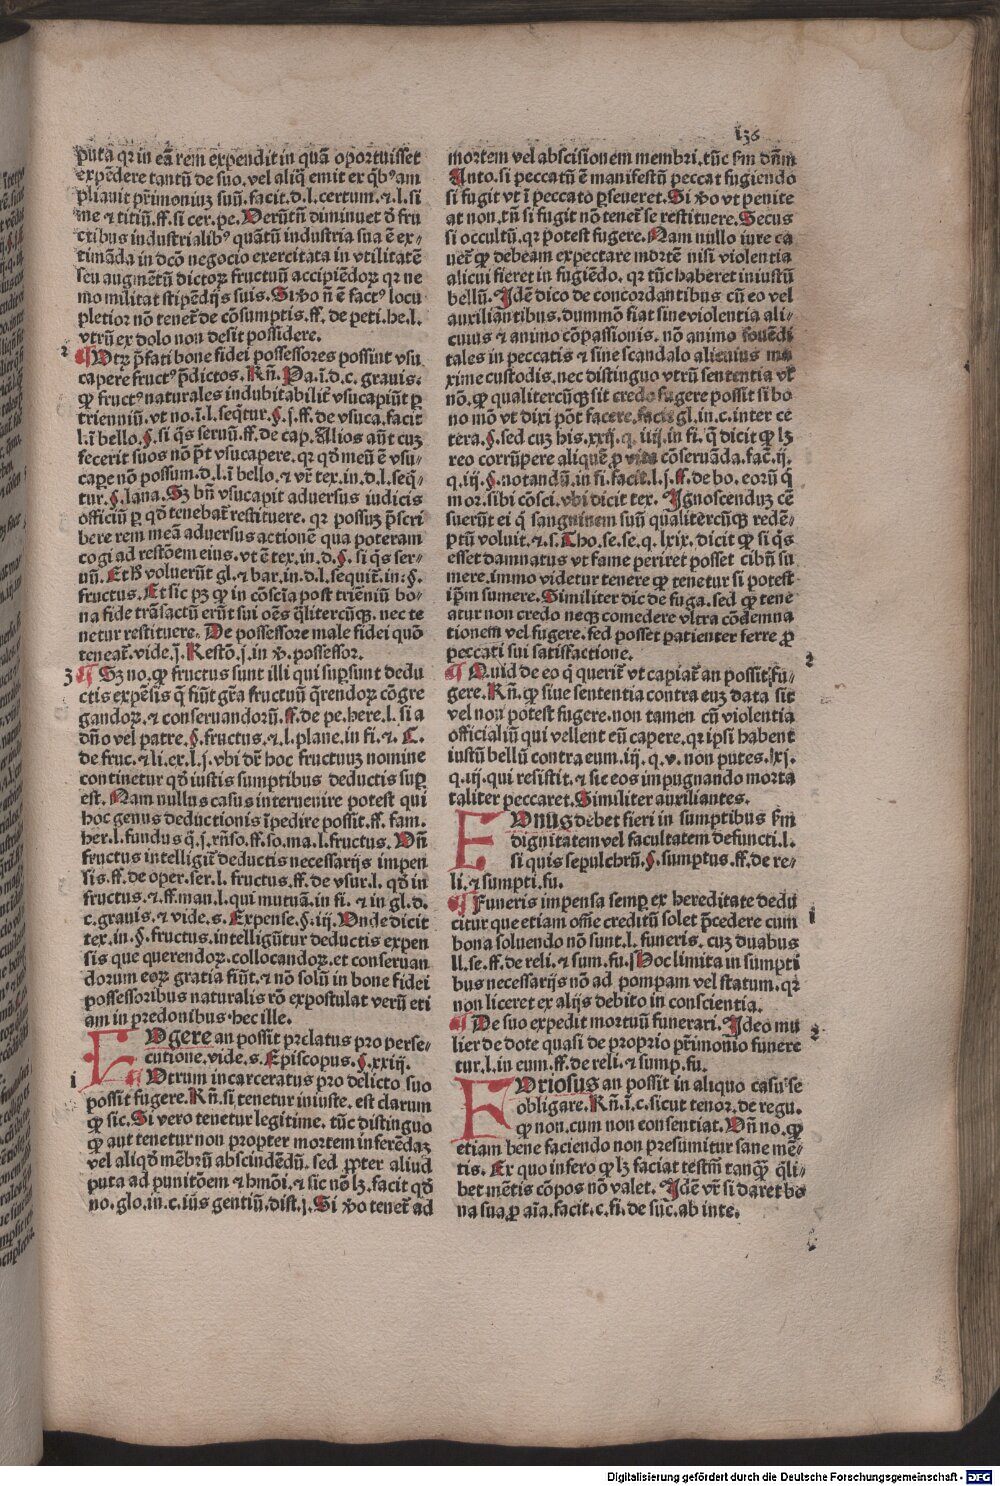 136
puta qꝛ in eã rem expendit in quã opoꝛtuisset
expẽdere tantũ de suo. vel aliq̃ emit ex q̃bꝰ am
pliauit pr̃imoniuȝ suũ. facit. d. l. certum. ⁊. l. si
me ⁊ titiũ. ff. si cer. pe. Uerũtñ diminuet ď fru
ctibus industrialibꝰ quãtũ industria sua ẽ ex⸗
timãda in dcõ negocio exercitata in vtilitatẽ
seu augmẽtũ dictoꝝ fructuũ accipiẽdoꝝ qꝛ ne
mo militat stipẽdijs suis. Si v̉o ñ ẽ factꝰ locu
pletioꝛ nõ tenet᷑ de cõsumptis. ff. de peti. he. l.
vtrũ ex dolo non desit possidere.
2
¶ Utꝝ p̃fati bone fidei possessoꝛes possint vsu
capere fructꝰ p̃dictos. Rñ. Pa. ĩ. d. c. grauis.
ꝙ fructꝰ naturales indubitabilit᷑ vsucapiũt ꝑ
trienniũ. vt no. ĩ. l. seq̃tur. §. j. ff. de vsuca. facit
l. ĩ bello. §. si q̃s seruũ. ff. de cap. Alios aũt cuȝ
fecerit suos nõ p̃t vsucapere. qꝛ qď meũ ẽ vsu⸗
cape nõ possum. d. l. ĩ bello. ⁊ vr̃ tex. in. d. l. seq̃⸗
tur. §. lana. Sȝ bñ vsucapit aduersus iudicis
officiũ ꝑ qď tenebat᷑ restituere. qꝛ possuȝ p̃scri
bere rem meã aduersus actionẽ qua poteram
cogi ad restõem eius. vt ẽ tex. in. d. §. si q̃s ser⸗
uũ. Et ħ voluerũt gl. ⁊ bar. in. d. l. sequit᷑. in. §.
fructus. Et sic pȝ ꝙ in cõscĩa post triẽniũ bo⸗
na fide trãsactũ erũt sui oẽs q̃litercũqȝ. nec te
netur restituere. De possessoꝛe male fidei quõ
teneat᷑. vide. j. Restõ. j. in v̉. possessoꝛ.
3
¶ Sȝ no. ꝙ fructus sunt illi qui suꝑsunt dedu
ctis expẽsis q̃ fiũt gr̃a fructuũ q̃rendoꝝ cõgre
gandoꝝ. ⁊ conseruandoꝛũ. ff. de pe. here. l. si a
dño vel patre. §. fructus. ⁊. l. plane. in fi. ⁊. C.
de fruc. ⁊ li. ex. l. j. vbi dr̃ hoc fructuuȝ nomine
continetur qď iustis sumptibus deductis suꝑ
est. Nam nullus casus interuenire potest qui
hoc genus deductionis ĩpedire possit. ff. fam.
her. l. fundus q̃. j. rñso. ff. so. ma. l. fructus. Uñ
fructus intelligũt᷑ deductis necessarijs impen
sis. ff. de oper. ser. l. fructus. ff. de vsur. l. qď in
fructus. ⁊. ff. man. l. qui mutuã. in fi. ⁊ in gl. d.
c. grauis. ⁊ vide. s. Expense. §. iij. Unde dicit
tex. in. §. fructus. intelligũtur deductis expen
sis que querendoꝝ. collocandoꝝ. et conseruan
doꝛum eoꝝ gratia fiũt. ⁊ nõ solũ in bone fidei
possessoꝛibus naturalis rõ expostulat verũ eti
am in pꝛedonibus. hec ille.
FUgere an possit pꝛelatus pꝛo perse⸗
cutione. vide. s. Episcopus. §. xxiij.
1
¶ Utrum incarceratus pꝛo delicto suo
possit fugere. Rñ. si tenetur iniuste. est clarum
ꝙ sic. Si vero tenetur legitime. tũc distinguo
ꝙ aut tenetur non pꝛopter moꝛtem inferẽdaȝ
vel aliqď mẽbꝛũ abscindẽdũ. sed pꝛopter aliud
puta ad punitõem ⁊ hmõi. ⁊ sic nõ lȝ. facit qď
no. glo. in. c. ius gentiũ. dist. j. Si v̉o tenet᷑ ad
moꝛtem vel abscisionem membꝛi. tũc ẜm dñm
Anto. si peccatũ ẽ manifestũ peccat fugiendo
si fugit vt ĩ peccato ꝑseueret. Si v̉o vt penite
at non. tñ si fugit nõ tenet᷑ se restituere. Secus
si occultũ. qꝛ potest fugere. Nam nullo iure ca
uet᷑ ꝙ debeam expectare moꝛtẽ nisi violentia
alicui fieret in fugiẽdo. qꝛ tũc haberet iniustũ
bellũ. Idẽ dico de concoꝛdantibus cũ eo vel
auxiliantibus. dummõ fiat sine violentia ali⸗
cuius ⁊ animo cõpassionis. nõ animo fouẽdi
tales in peccatis ⁊ sine scandalo alicuius ma
xime custodis. nec distinguo vtrũ sententia vt᷑
nõ. ꝙ qualitercũqȝ sit credo fugere possit si bo
no mõ vt dixi põt facere. facit gl. in. c. inter ce
tera. §. sed cuȝ his. xxij. q. iiij. in fi. q̃ dicit ꝙ lȝ
reo coꝛrũpere aliquẽ pꝛo vita cõseruãda. fac̃. ij.
q. iij. §. notandũ. in fi. facit. l. j. ff. de bo. eoꝛũ q̃
moꝛ. sibi cõsci. vbi dicit tex. Ignoscenduȝ cẽ
suerũt ei q̃ sanguinem suũ qualitercũqȝ redẽ⸗
ptũ voluit. ⁊. s. Tho. se. se. q. lxix. dicit ꝙ si q̃s
esset damnatus vt fame periret posset cibũ su
mere. immo videtur tenere ꝙ tenetur si potest
ip̃m sumere. Similiter dic de fuga. sed ꝙ tene
atur non credo neqȝ comedere vltra cõdemna
tionem vel fugere. sed posset patienter ferre ꝓ
peccati sui satisfactione.
2
¶ Quid de eo q̃ querit᷑ vt capiat᷑ an possit fu⸗
gere. Rñ. ꝙ siue sententia contra euȝ data sit
vel non potest fugere. non tamen cũ violentia
officialiũ qui vellent eũ capere. qꝛ ipsi habent
iustũ bellũ contra eum. iij. q. v. non putes. ⁊ xj.
q. iij. qui resistit. ⁊ sic eos impugnando moꝛta
taliter peccaret. Similiter auxiliantes.
FUnus debet fieri in sumptibus ẜm
dignitatem vel facultatem defuncti. l.
si quis sepulchꝛũ. §. sumptus. ff. de re⸗
li. ⁊ sumpti. fu.
1
¶ Funeris impensa semꝑ ex hereditate dedu
citur que etiam omne creditũ solet p̃cedere cum
bona soluendo nõ sunt. l. funeris. cuȝ duabus
ll. se. ff. de reli. ⁊ sum. fu. Hoc limita in sumpti
bus necessarijs nõ ad pompam vel statum. qꝛ
non liceret ex alijs debito in conscientia.
2
¶ De suo expedit moꝛtuũ funerari. Ideo mu
lier de dote quasi de pꝛopꝛio pr̃imonio funere
tur. l. in eum. ff. de reli. ⁊ sump. fu.
FUriosus an possit in aliquo casu se
obligare. Rñ. ĩ. c. sicut tenoꝛ. de regu.
ꝙ non. cum non consentiat. Uñ no. ꝙ
etiam bene faciendo non pꝛesumitur sane mẽ⸗
tis. Ex quo infero ꝙ lȝ faciat testm̃ tanqȝ̃ q̃li⸗
bet mẽtis cõpos nõ valet. Idẽ vr̃ si daret bo
na sua ꝑ aĩa. facit. c. fi. de suc̃. ab inte.
Digitalisierung gefördert durch die Deutsche Forschungsgemeinschaft - DFG